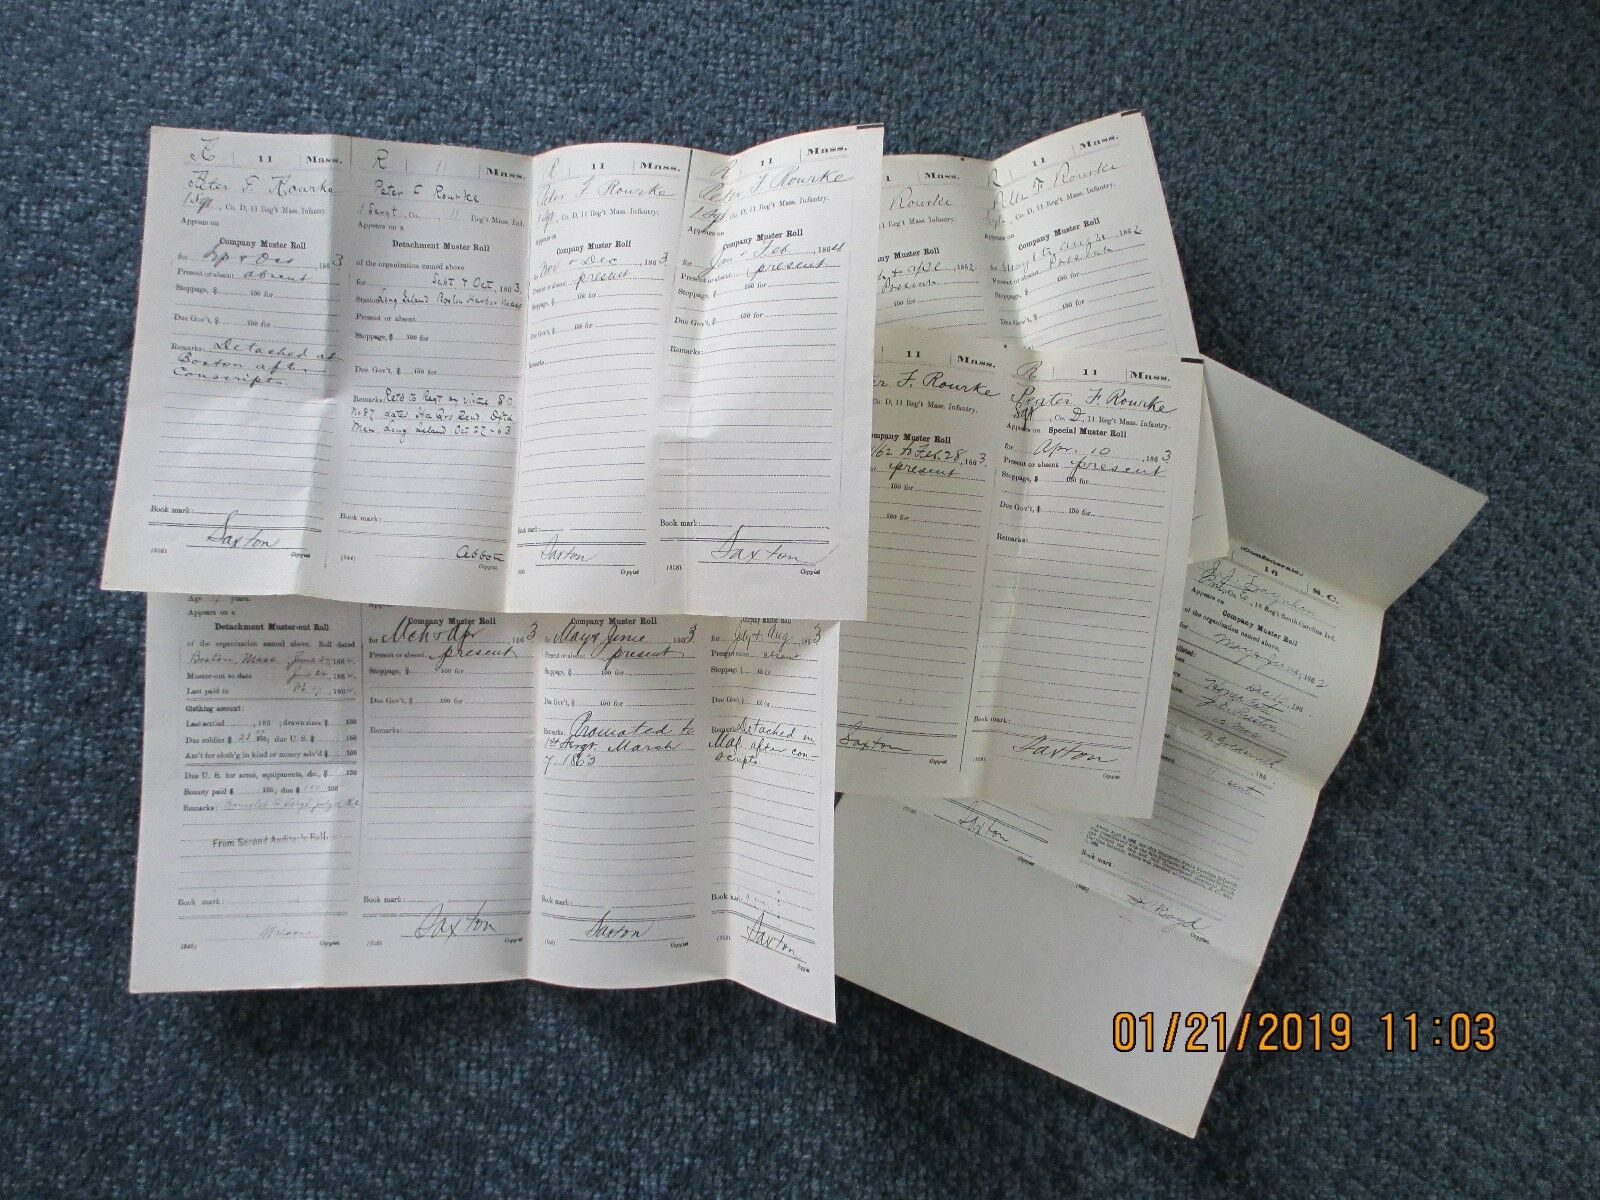 R | 11 | Mass.
Peter F. Rourke
1 Sgt., Co. D, 11 Reg't Mass. Infantry.
Appears on
Company Muster Roll
for Sep & Oct, 186 3
Present or absent absent
Stoppage, $ 100 for
Due Gov't, $ 100 for
Remarks: Detached at
Boston after
Conscripts.
Book mark:
Saxton
(358) Copyist.
R | 11 | Mass.
Peter F Rourke
1 Sergt, Co. 11 Reg't Mass. Inf.
Appears on a
Detachment Muster Roll
of the organization named above
for Sept & Oct, 186 3.
Station Long Island Boston Harbor Mass
Present or absent
Stoppage, $ 100 for
Due Gov't, $ 100 for
Remarks: Retd to Regt by virtue S.O.
No 87 dated Hd Qrs Rend Dftd
Men Long Island Oct 27-63
Book mark:
Abbott
Copyist
R | 11 | Mass.
Peter F Rourke
1 Sgt, Co. D, 11 Reg't Mass. Infantry.
Appears on
Company Muster Roll
for Nov & Dec, 186 3
Present or absent present
Stoppage, $ 100 for
Due Gov't, $ 100 for
Remarks:
Book mark:
Saxton
Copyist
R | 11 | Mass.
Peter F Rourke
1 Sgt, Co. D, 11 Reg't Mass. Infantry.
Appears on
Company Muster Roll
for Jan & Feb, 186 4
Present or absent present
Stoppage, $ 100 for
Due Gov't, $ 100 for
Remarks:
Book mark:
Saxton
(358) Copyist
1 | Mass.
Rourke
Co. D, 11 Reg't Mass. Infantry.
Company Muster Roll
& Apl, 186 2.
Present
100 for
R | 11 | Mass.
Peter F Rourke
Co. D, 11 Reg't Mass. Infantry.
Appears on
Company Muster Roll
for May 1 to Aug 31, 186 2
Present or absent Present
Stoppage, $ 100 for
Due Gov't, $ 100 for
11 | Mass.
er F. Rourke
Co. D, 11 Reg't Mass. Infantry.
ompany Muster Roll
/62 to Feb. 28, 186 3.
present
100 for
100 for
Saxton
Copyist
R | 11 | Mass.
Peter F. Rourke
Sgt, Co. D, 11 Reg't Mass. Infantry.
Appears on Special Muster Roll
for Apr. 10, 186 3
Present or absent present
Stoppage, $ 100 for
Due Gov't, $ 100 for
Remarks:
Book mark:
Saxton
Copyist
Age years.
Appears on a
Detachment Muster-out Roll
of the organization named above. Roll dated
Boston Mass June 24, 186 4.
Muster-out to date June 24, 186 4.
Last paid to 186 4.
Clothing account:
Last settled , 186 ; drawn since $ 100
Due soldier $ 100; due U. S. $ 100
Am't for cloth'g in kind or money adv'd $ 100
Due U. S. for arms, equipments, &c., $ 100
Bounty paid $ 100; due $ 100 100
Remarks: Promoted to Sergt
From Second Auditor's Roll.
Book mark:
Copyist.
Company Muster Roll
for Mch & Apr, 186 3
Present or absent present
Stoppage, $ 100 for
Due Gov't, $ 100 for
Remarks:
Book mark:
Saxton
(358) Copyist
Company Muster Roll
for May & June, 186 3.
Present or absent present
Stoppage, $ 100 for
Due Gov't, $ 100 for
Remarks: Promoted to
1st Sergt. March
7, 1863
Book mark:
Saxton
Copyist
Company Muster Roll
for July & Aug, 186 3
Present or absent absent
Stoppage, $
Due Gov't, $
Remarks: Detached in
Mass. after con-
scripts
Book mark:
Saxton
Copyist
Saxton
Copyist
(Confederate.)
16 | S. C.
Private, Co. E, 16 Reg't South Carolina Inf.
Appears on
Company Muster Roll
of the organization named above,
for May & June, 186 2
Book mark:
Boyd
Copyist.
01/21/2019 11:03